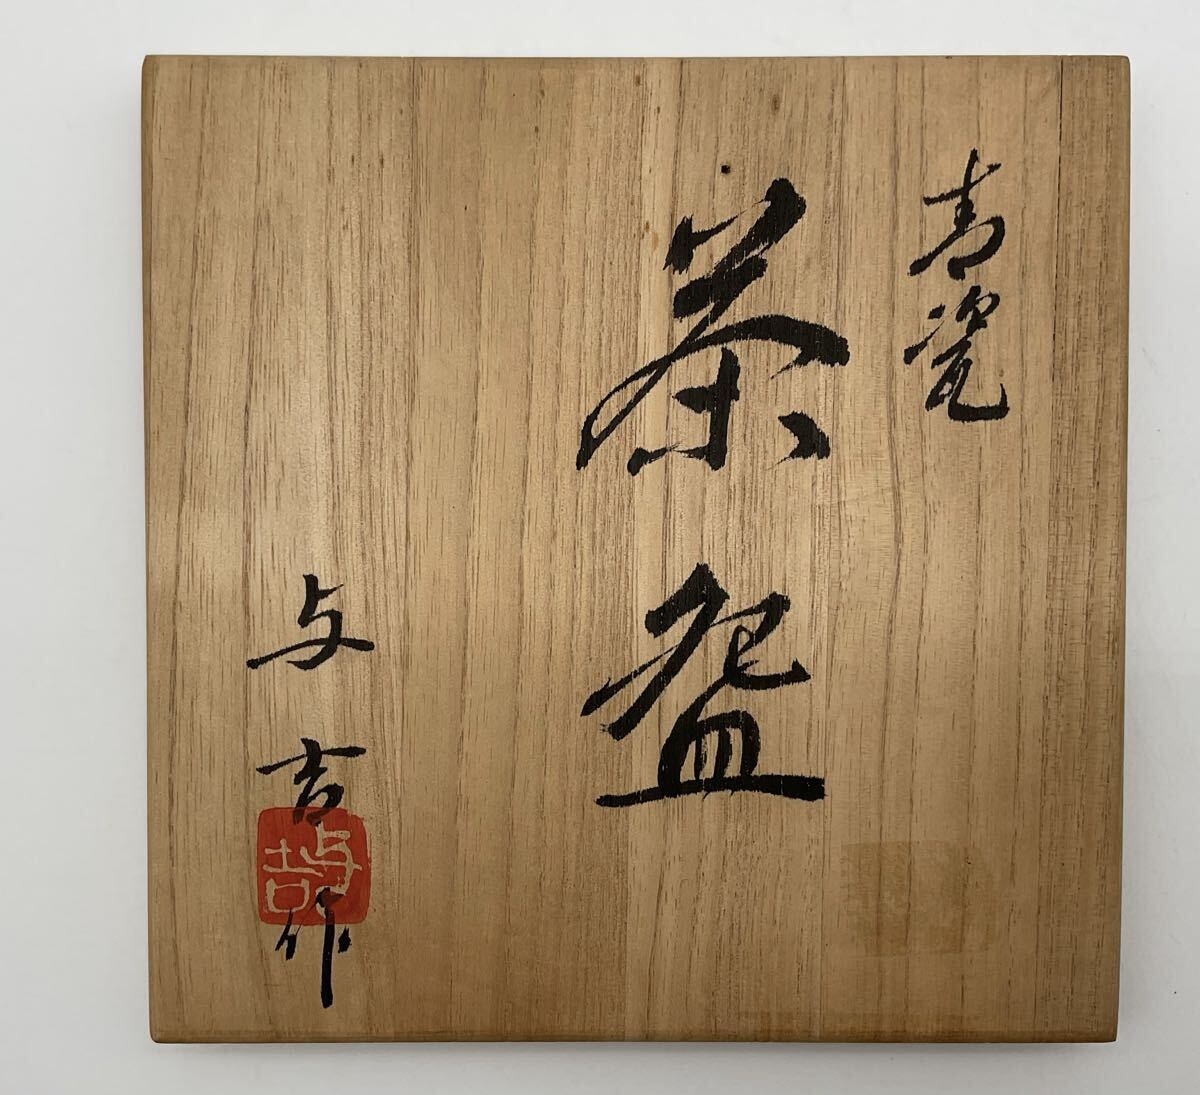 青瓷
茶盌
与吉作
与吉